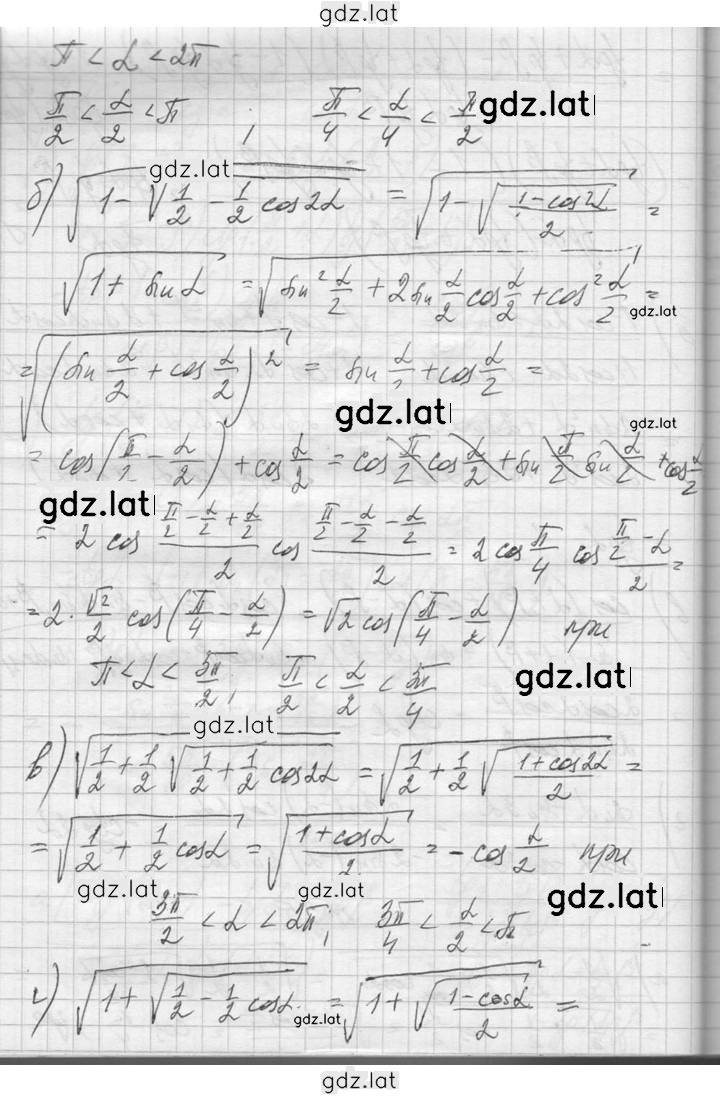 gdz.lat
π < α < 2π
π/2 < α/2 < π ; π/4 < α/4 < π/2 gdz.lat
gdz.lat
б) √(1 - √(1/2 - 1/2 cos 2α)) = √(1 - √((1 - cos 2α)/2)) =
√(1 + sin α) = √(sin² α/2 + 2 sin α/2 cos α/2 + cos² α/2) =
gdz.lat
= √((sin α/2 + cos α/2)²) = sin α/2 + cos α/2 =
gdz.lat
gdz.lat
= cos(π/2 - α/2) + cos α/2 = cos π/2 cos α/2 + sin π/2 sin α/2 + cos α/2
gdz.lat
= 2 cos (π/2 - α/2 + α/2)/2 cos (π/2 - α/2 - α/2)/2 = 2 cos π/4 cos (π/2 - α)/2 =
= 2 · √2/2 cos(π/4 - α/2) = √2 cos(π/4 - α/2) при
π < α < 3π/2 ; π/2 < α/2 < 3π/4 gdz.lat
gdz.lat
в) √(1/2 + 1/2 √(1/2 + 1/2 cos 2α)) = √(1/2 + 1/2 √((1 + cos 2α)/2)) =
= √(1/2 + 1/2 cos α) = √((1 + cos α)/2) = - cos α/2 при
gdz.lat gdz.lat gdz.lat
3π/2 < α < 2π ; 3π/4 < α/2 < π
г) √(1 + √(1/2 - 1/2 cos α)) = √(1 + √((1 - cos α)/2)) =
gdz.lat
gdz.lat